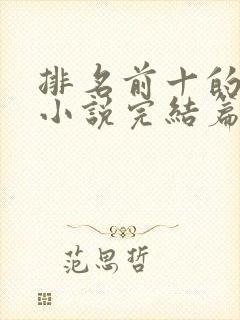 排名前十的
小说完结篇
范思哲